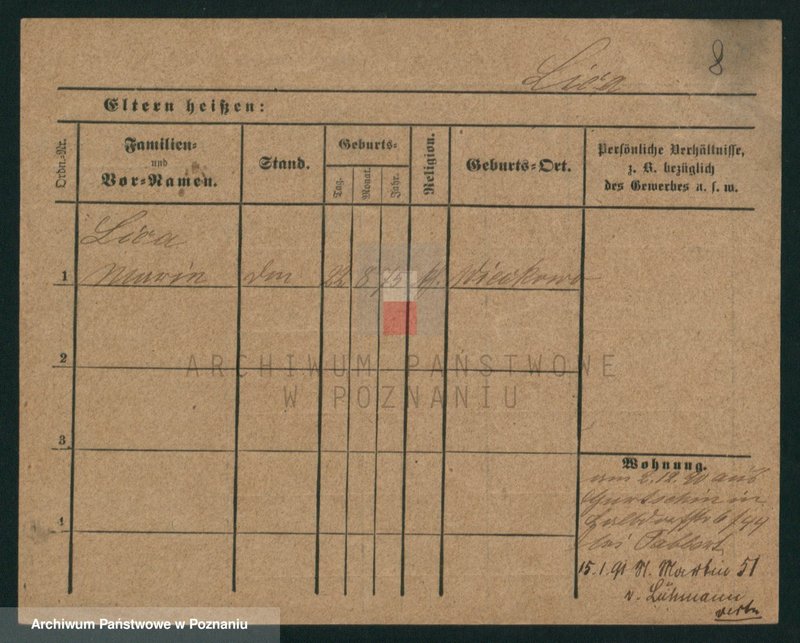 8
Liva
Eltern heißen:
Ordn.-Nr.
Familien-
und
Vor-Namen.
Stand.
Geburts-
Tag.
Monat.
Jahr.
Religion.
Geburts-Ort.
Persönliche Verhältnisse,
z. B. bezüglich
des Gewerbes u. s. w.
Liva
1 22 8 75
2
3
4
ARCHIWUM PAŃSTWOWE
W POZNANIU
Wohnung.
am 2.12.90 aus
in
bei
15.1.91 St. Martin 51
v. Lühmann
Archiwum Państwowe w Poznaniu